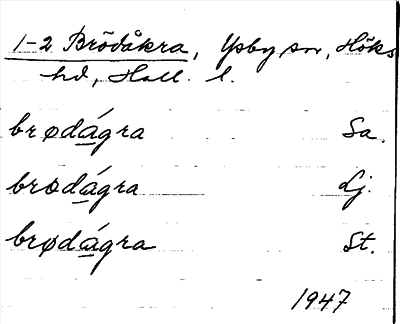 1-2 Brödåkra, Ysby sn, Höks
hd, Hall. l.
brødágra Sa.
brødágra Lj.
brødágra St.
1947